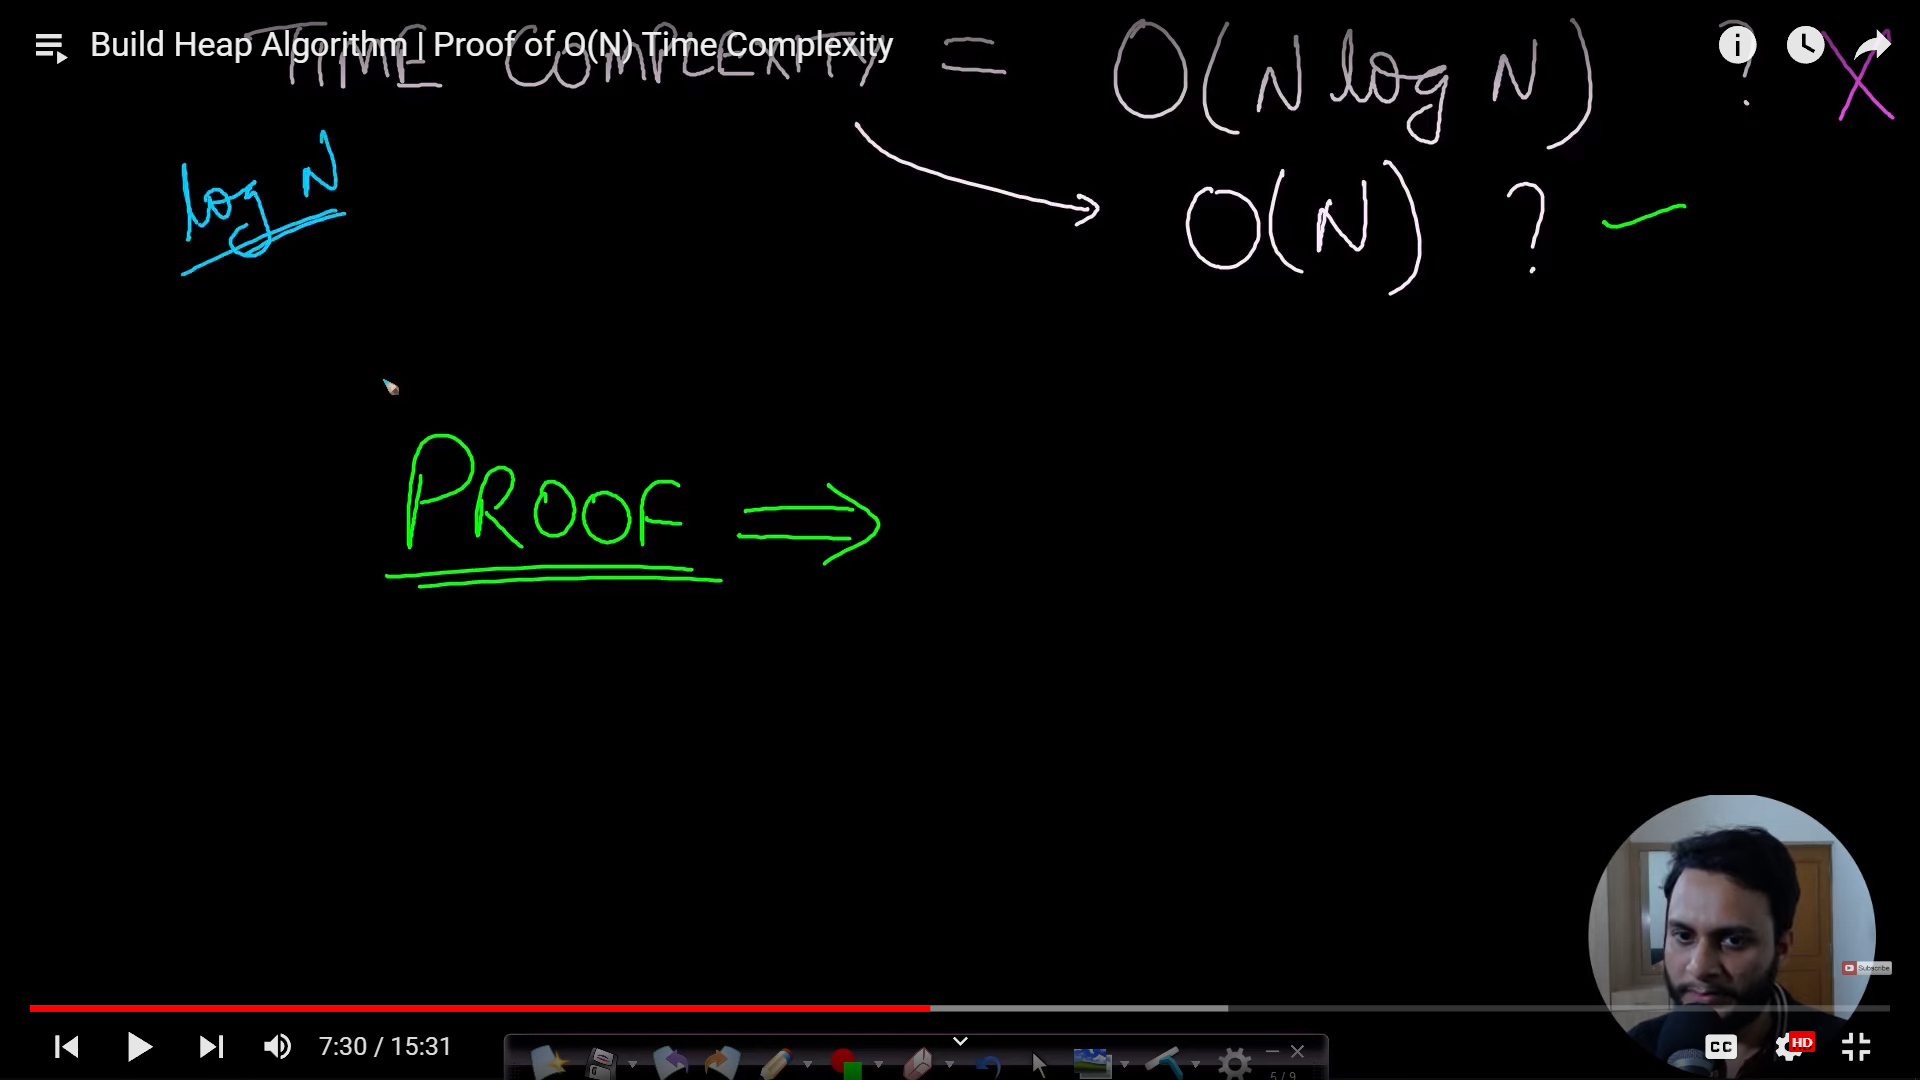 Build Heap Algorithm | Proof of O(N) Time Complexity
TIME COMPLEXITY = O(N log N) ? X
log N
O(N) ? ✓
PROOF ⇒
Subscribe
7:30 / 15:31
CC
HD
5/9